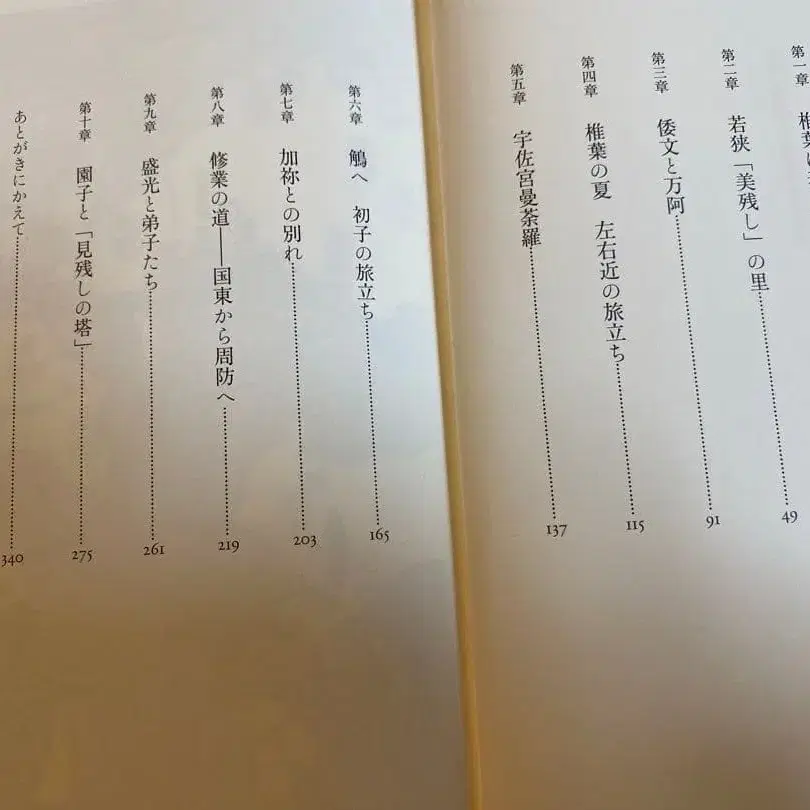 第一章 椎葉
第二章 若狭「美残し」の里 49
第三章 倭文と万阿 91
第四章 椎葉の夏 左右近の旅立ち 115
第五章 宇佐宮曼荼羅 137
第六章 鵤へ 初子の旅立ち 165
第七章 加祢との別れ 203
第八章 修業の道──国東から周防へ 219
第九章 盛光と弟子たち 261
第十章 園子と「見残しの塔」 275
あとがきにかえて 340